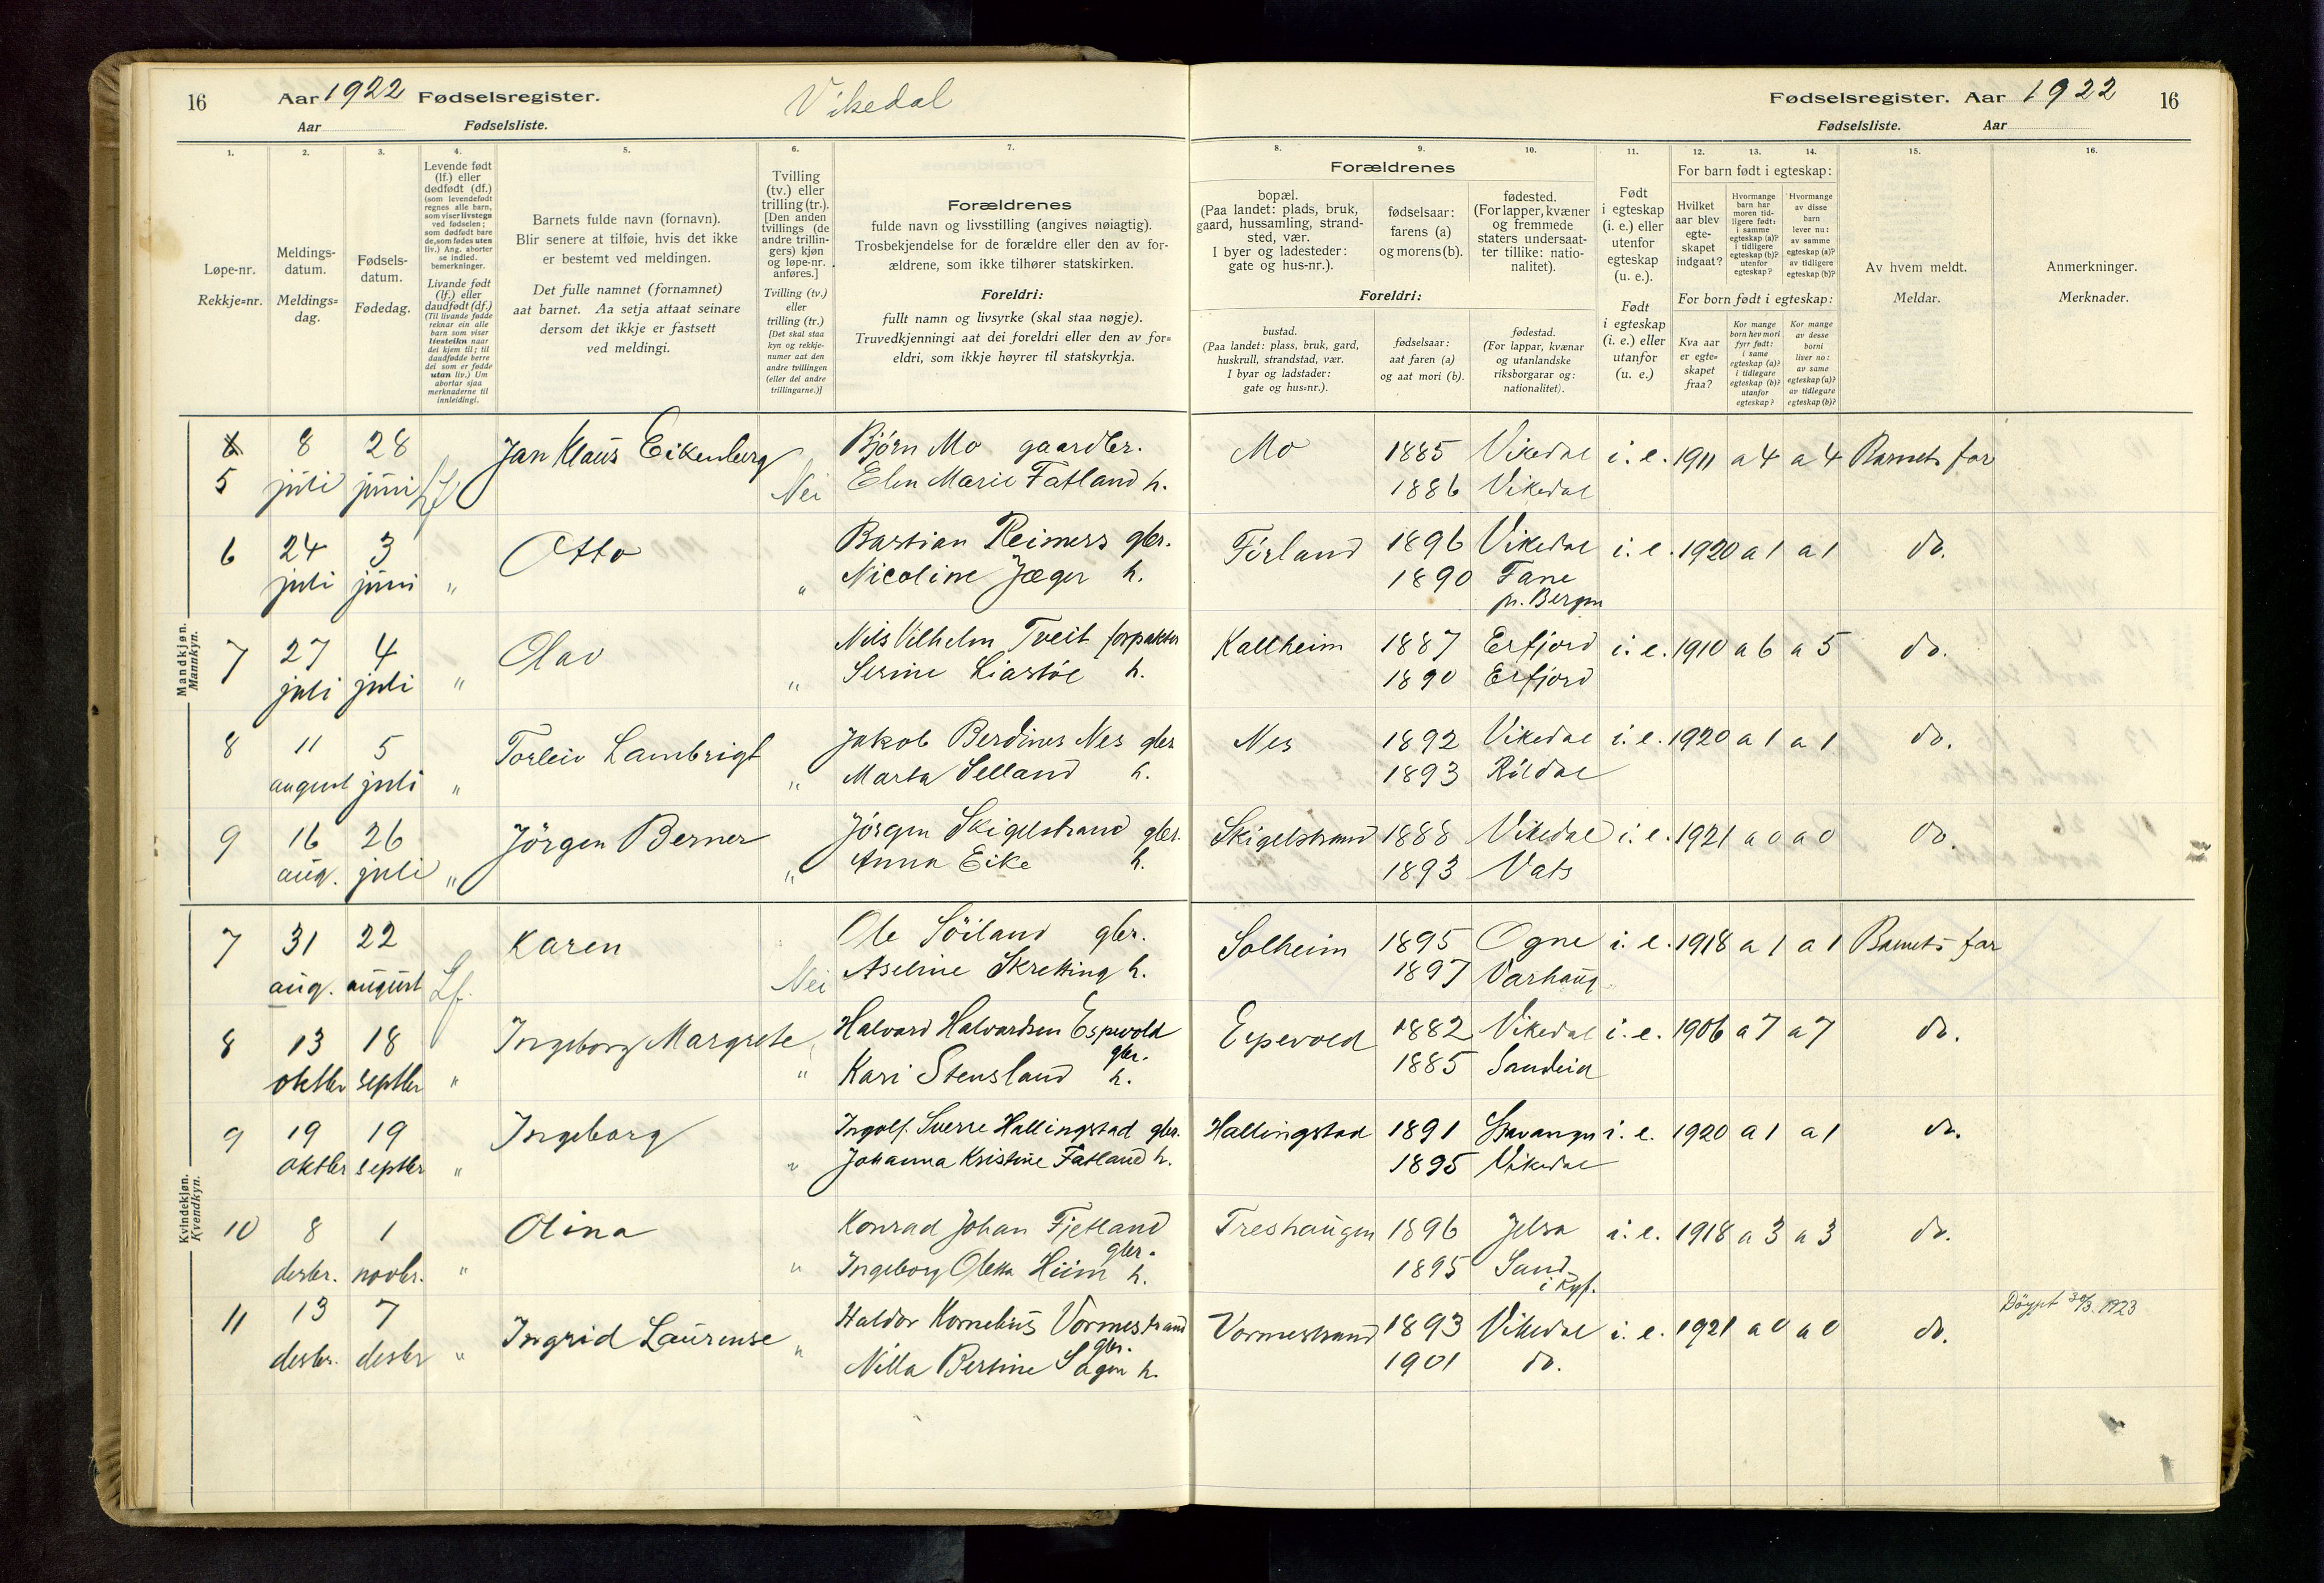 16 Aar 1922 Fødselsregister. Vikedal
Aar Fødselsliste.
Fødselsregister. Aar 1922 16
Fødselsliste. Aar
1. 2. 3. 4. 5. 6. 7.
Løpe-nr.
Rekkje=nr.
Meldings-
datum.
Meldings=
dag.
Fødsels-
datum.
Fødedag.
Levende født
(lf.) eller
dødfødt (df.)
(som levendefødt
regnes alle barn,
som viser livstegn
ved fødselen;
som dødfødt bare
de, som fødes uten
liv.) Ang. aborter
se indled.
bemerkninger.
Livande født
(lf.) eller
daudfødt (df.)
(Til livande fødde
reknar ein alle
barn som viser
livsteikn naar
dei kjem til; til
daudfødde berre
dei som er fødde
utan liv.) Um
abortar sjaa
merknaderne til
innleidingi.
Barnets fulde navn (fornavn).
Blir senere at tilføie, hvis det ikke
er bestemt ved meldingen.
Det fulle namnet (fornamnet)
aat barnet. Aa setja attaat seinare
dersom det ikkje er fastsett
ved meldingi.
Tvilling
(tv.) eller
trilling (tr.).
[Den anden
tvillings (de
andre trillin-
gers) kjøn
og løpe-nr.
anføres.]
Tvilling (tv.)
eller
trilling (tr.)
[Det skal staa
kyn og rekkje-
numer aat den
andre tvillingen
(eller dei andre
trillingarne.)]
Forældrenes
fulde navn og livsstilling (angives nøiagtig).
Trosbekjendelse for de forældre eller den av for-
ældrene, som ikke tilhører statskirken.
Foreldri:
fullt namn og livsyrke (skal staa nøgje).
Truvedkjenningi aat dei foreldri eller den av for=
eldri, som ikkje høyrer til statskyrkja.
8. 9. 10. 11. 12. 13. 14. 15. 16.
Forældrenes
bopæl.
(Paa landet: plads, bruk,
gaard, hussamling, strand-
sted, vær.
I byer og ladesteder:
gate og hus-nr.).
fødselsaar:
farens (a)
og morens (b).
fødested.
(For lapper, kvæner
og fremmede
staters undersaat-
ter tillike: natio-
nalitet).
Foreldri:
bustad.
(Paa landet: plass, bruk, gard,
huskrull, strandstad, vær.
I byar og ladstader:
gate og hus=nr.).
fødselsaar:
aat faren (a)
og aat mori (b).
fødestad.
(For lappar, kvænar
og utanlandske
riksborgarar og:
nationalitet).
Født
i egteskap
(i. e.) eller
utenfor
egteskap
(u. e.).
Født
i egteskap
(i. e.) eller
utanfor
(u. e.)
For barn født i egteskap:
Hvilket
aar blev
egte-
skapet
indgaat?
Hvormange
barn har
moren tid-
ligere født:
i samme
egteskap (a)?
i tidligere
egteskap (b)?
utenfor
egteskap?
Hvormange
av disse
barn
lever nu:
av samme
egteskap (a)?
av tidligere
egteskap (b)?
For born født i egteskap:
Kva aar
er egte=
skapet
fraa?
Kor mange
born hev mori
fyrr født:
i same
egteskap (a)?
i tidlegare
egteskap (b)?
utanfor
egteskap?
Kor mange
av desse
borni
liver no:
av same
egteskap (a)?
av tidlegare
egteskap (b)?
Av hvem meldt.
Meldar.
Anmerkninger.
Merknader.
Mandkjøn.
Mannkyn.
6 8 28 Jan Klaus Eikenberg Bjørn Mo gaardbr. Mo 1885 Vikedal i. e. 1911 a 4 a 4 Barnets far
5 juli juni Lf Nei Elen Marie Fatland h. 1886 Vikedal
6 24 3 Otto Bastian Reimers gbr. Förland 1896 Vikedal i. e. 1920 a 1 a 1 do.
juli juni " " Nicoline Jæger h. 1890 Fane
pr. Bergen
7 27 4 Olav Nils Vilhelm Tveit forpakter Kallheim 1887 Erfjord i. e. 1910 a 6 a 5 do.
juli juli " " Serine Liastöl h. 1890 Erfjord
8 11 5 Torleiv Lambrigt Jakob Berdines Nes gbr Nes 1892 Vikedal i. e. 1920 a 1 a 1 do.
august juli " " Marta Selland h. 1893 Röldal
9 16 26 Jörgen Berner Jörgen Skigelstrand gbr. Skigelstrand 1888 Vikedal i. e. 1921 a 0 a 0 do.
aug. juli " " Anna Eike h. 1893 Vats
Kvindekjøn.
Kvendkyn.
7 31 22 Karen Ole Söiland gbr. Solheim 1895 Ogne i. e. 1918 a 1 a 1 Barnets far
aug. august Lf. Nei Aseline Skretting h. 1897 Varhaug
8 13 18 Ingeborg Margrete Halvard Halvardsen Espevold Espevold 1882 Vikedal i. e. 1906 a 7 a 7 do.
gbr.
oktbr septbr " " Kari Stensland h. 1885 Sandeid
9 19 19 Ingeborg Ingolf Sverre Hallingstad gbr. Hallingstad 1891 Stavanger i. e. 1920 a 1 a 1 do.
oktbr septbr " " Johanna Kristine Fatland h. 1895 Vikedal
10 8 1 Olina Konrad Johan Fjetland Treshaugen 1896 Jelsa i. e. 1918 a 3 a 3 do.
gbr.
desbr. novbr. " " Ingeborg Oletta Hiim h. 1895 Sand
i Ryf.
11 13 7 Ingrid Laurense Haldor Kornelius Vormestrand Vormestrand 1893 Vikedal i. e. 1921 a 0 a 0 do. Döypt 30/3. 1923
gbr.
desbr. desbr " " Nilla Bertine Sagen h. 1901 do.